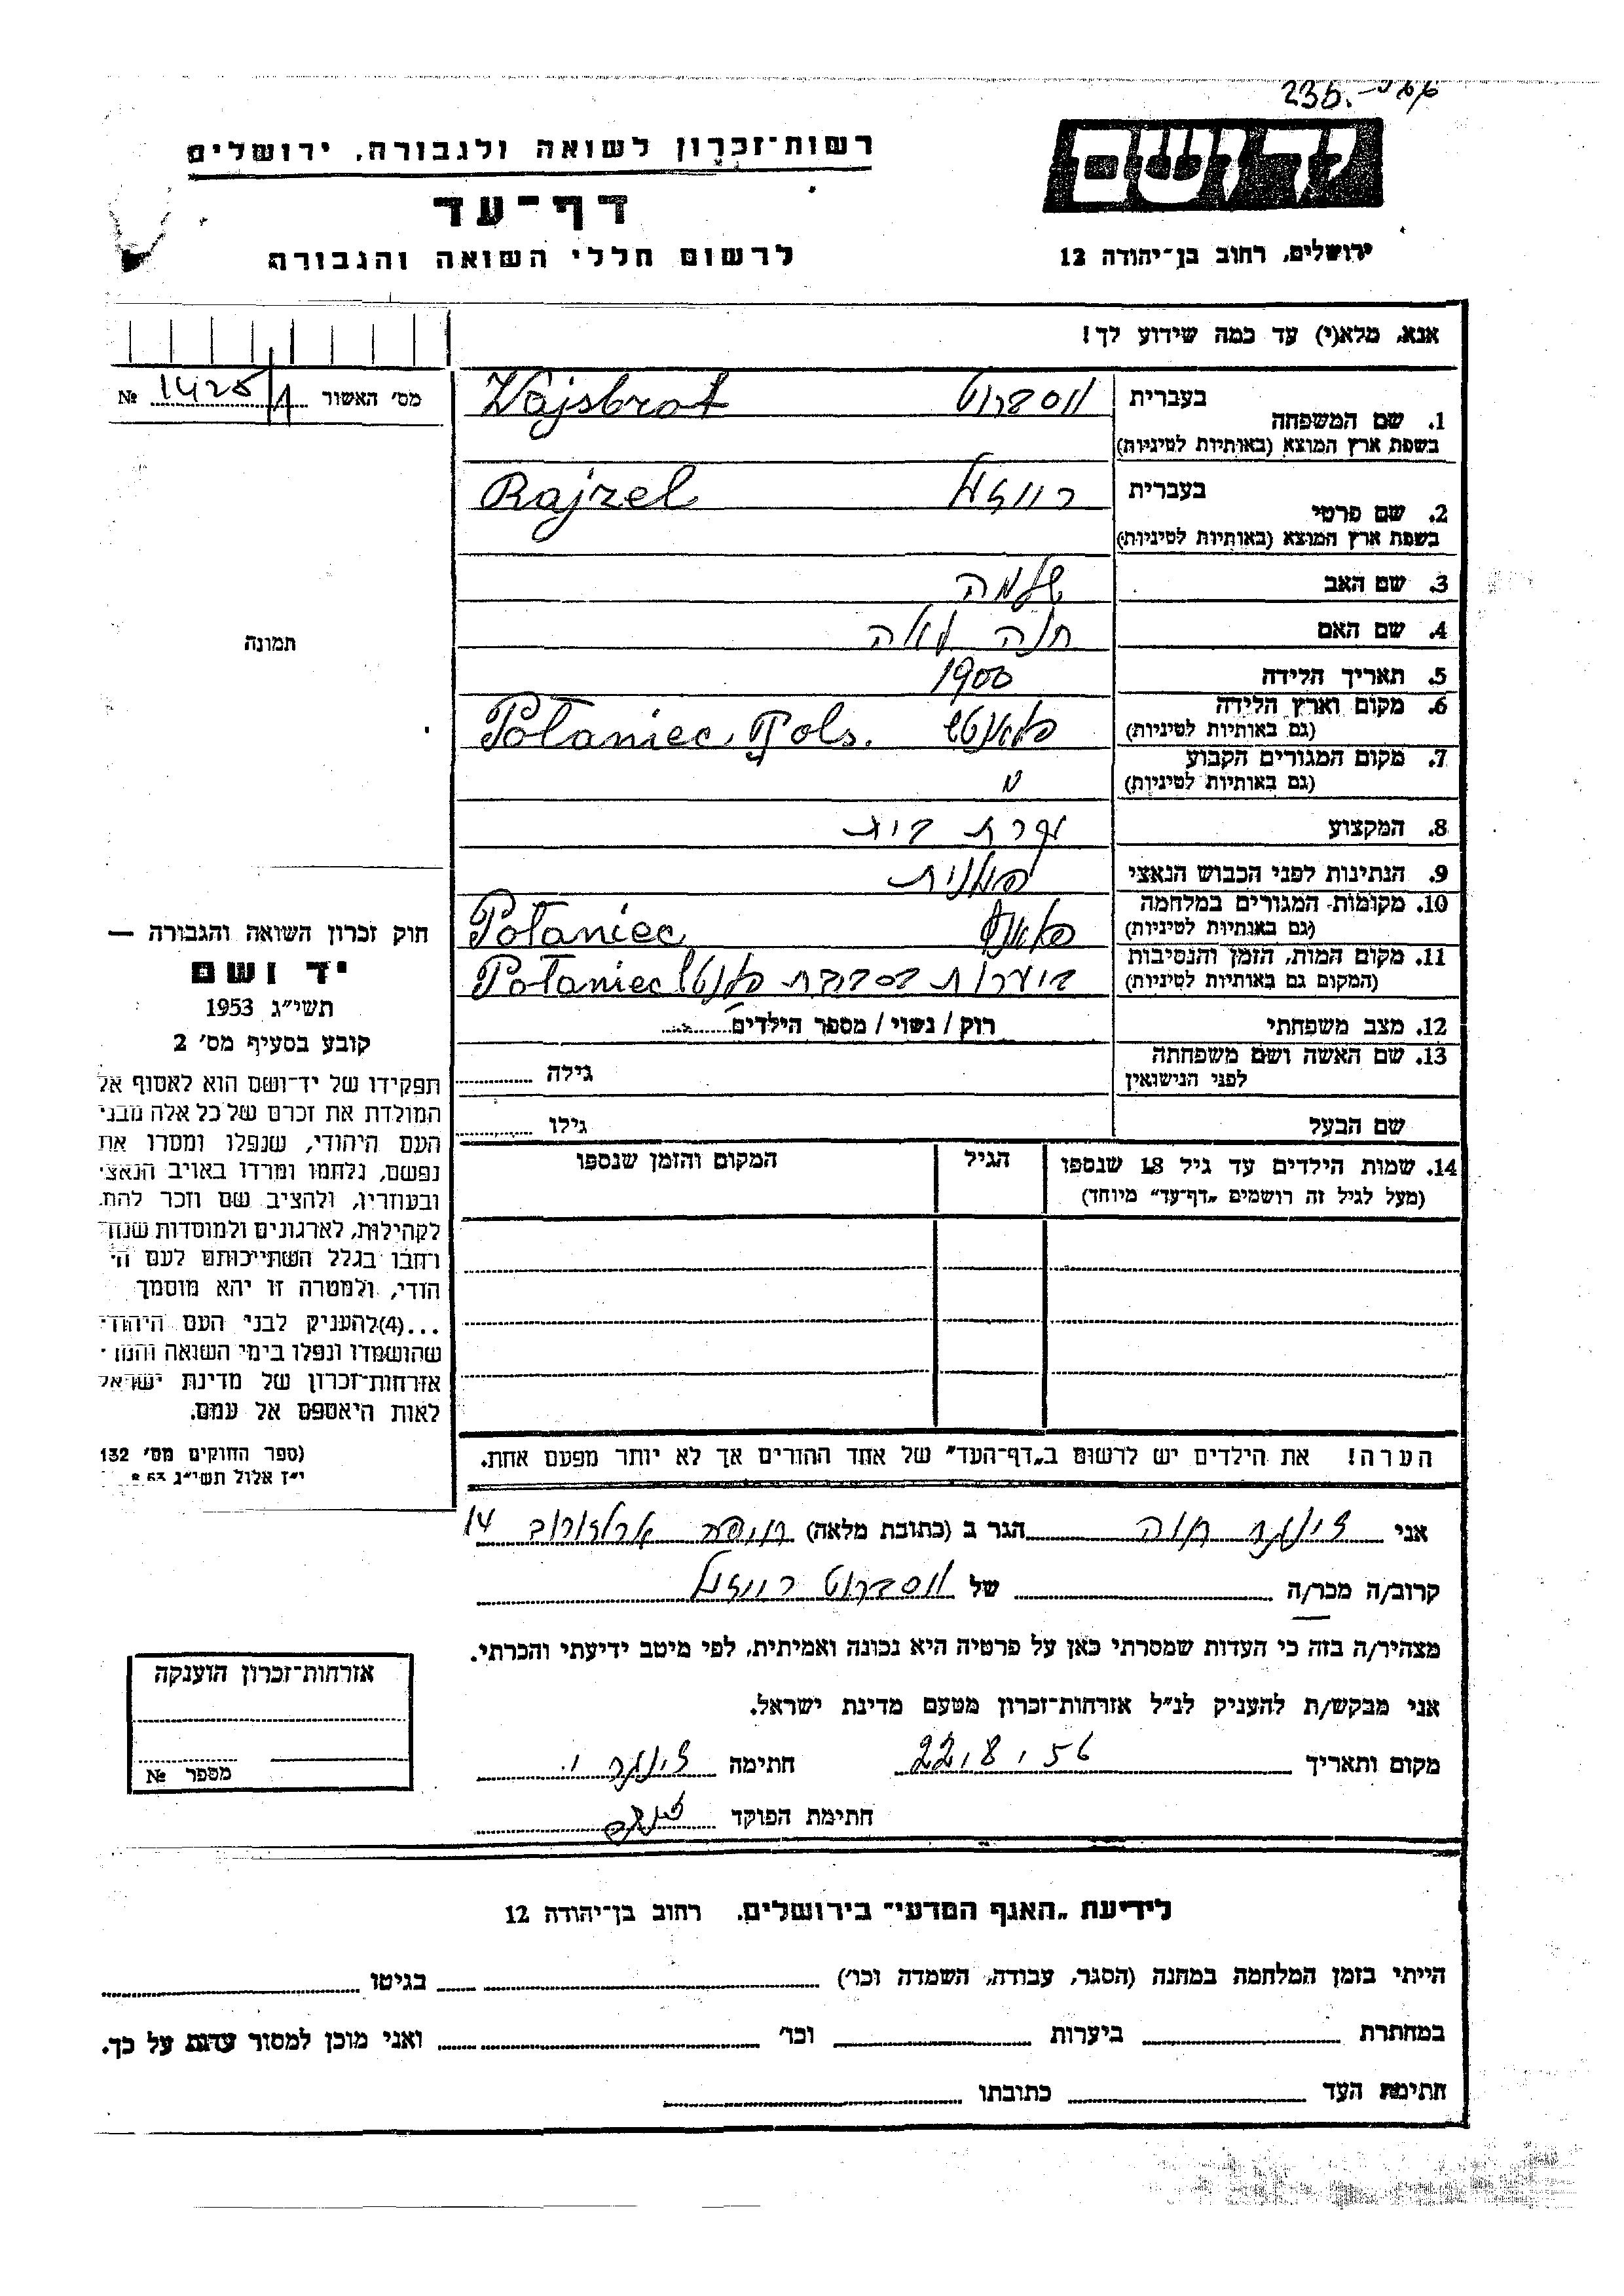 235.-
רשות־זכרון לשואה ולגבורה, ירושלים
יד ושם
דף־עד
לרשום חללי השואה והגבורה
ירושלים, רחוב בן־יהודה 12
אנא, מלא(י) עד כמה שידוע לך!
מס׳ האשור 1425/1 №
1. שם המשפחה
בעברית וייסברוט Wajsbrot
בשפת ארץ המוצא (באותיות לטיניות)
2. שם פרטי
בעברית רויזל Rajzel
בשפת ארץ המוצא (באותיות לטיניות)
3. שם האב שלמה
4. שם האם חנה לאה
תמונה
5. תאריך הלידה 1900
6. מקום וארץ הלידה Połaniec, Pols.
(גם באותיות לטיניות)
7. מקום המגורים הקבוע
(גם באותיות לטיניות)
8. המקצוע עקרת בית
9. הנתינות לפני הכבוש הנאצי פולנית
10. מקומות המגורים במלחמה Połaniec
(גם באותיות לטיניות)
11. מקום המות, הזמן והנסיבות ביערות בסביבת Połaniec
(המקום גם באותיות לטיניות)
12. מצב משפחתי רוק / נשוי / מספר הילדים
13. שם האשה ושם משפחתה גילה
לפני הנישואין
שם הבעל גילו
14. שמות הילדים עד גיל 18 שנספו הגיל המקום והזמן שנספו
(מעל לגיל זה רושמים „דף־עד” מיוחד)
חוק זכרון השואה והגבורה —
יד ושם
תשי״ג 1953
קובע בסעיף מס׳ 2
תפקידו של יד־ושם הוא לאסוף אל
המולדת את זכרם של כל אלה מבני
העם היהודי, שנפלו ומסרו את
נפשם, נלחמו ומרדו באויב הנאצי
ובעוזריו, ולהציב שם וזכר להם,
לקהילות, לארגונים ולמוסדות שנח־
רחבו בגלל השתייכותם לעם הי־
הודי, ולמטרה זו יהא מוסמך
...(4)להעניק לבני העם היהודי
שהושמדו ונפלו בימי השואה והמרי
אזרחות־זכרון של מדינת ישראל
לאות היאספם אל עמם.
(ספר החוקים מס׳ 132
י״ז אלול תשי״ג
הערה! את הילדים יש לרשום ב„דף־העד” של אחד ההורים אך לא יותר מפעם אחת.
אני זינגר חוה הגר ב (כתובת מלאה) חיפה ארלוזורוב 14
קרוב/ה מכר/ה של וייסברוט רויזל
מצהיר/ה בזה כי העדות שמסרתי כאן על פרטיה היא נכונה ואמיתית, לפי מיטב ידיעתי והכרתי.
אני מבקש/ת להעניק לנ״ל אזרחות־זכרון מטעם מדינת ישראל.
מקום ותאריך 22.8.56 חתימה זינגר
חתימת הפוקד
אזרחות־זכרון הוענקה
מספר №
לידיעת „האגף המדעי” בירושלים, רחוב בן־יהודה 12
הייתי בזמן המלחמה במחנה (הסגר, עבודה, השמדה וכו׳) בגיטו
במחתרת ביערות וכו׳ ואני מוכן למסור עדות על כך.
חתימת העד כתובתו